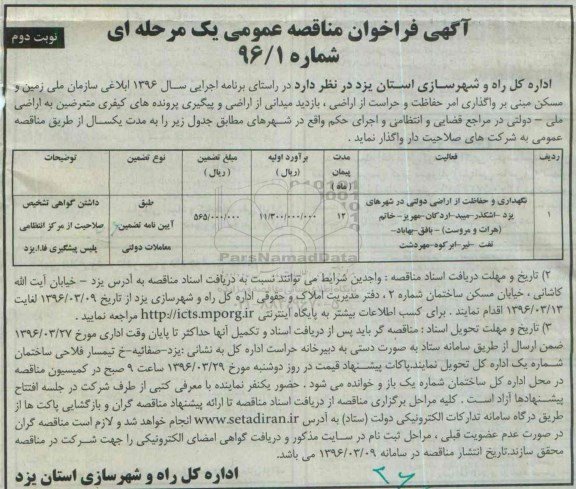 آگهی فراخوان مناقصه عمومی یک مرحله ای
نوبت دوم
شماره ۹۶/۱
اداره کل راه و شهرسازی استان یزد در نظر دارد در راستای برنامه اجرایی سال ۱۳۹۶ ابلاغی سازمان ملی زمین و
مسکن مبنی بر واگذاری امر حفاظت و حراست از اراضی ، بازدید میدانی از اراضی و پیگیری پرونده های کیفری متعرضین به اراضی
ملی – دولتی در مراجع قضایی و انتظامی و اجرای حکم واقع در شهرهای مطابق جدول زیر را به مدت یکسال از طریق مناقصه
عمومی به شرکت های صلاحیت دار واگذار نماید .
ردیف فعالیت مدت پیمان (ماه) برآورد اولیه (ریال) مبلغ تضمین (ریال) نوع تضمین توضیحات
۱ نگهداری و حفاظت از اراضی دولتی در شهرهای ۱۲ ۱۱/۳۰۰/۰۰۰/۰۰۰ ۵۶۵/۰۰۰/۰۰۰ طبق داشتن گواهی تشخیص
یزد -اشکذر-میبد-اردکان-مهریز-خاتم آیین نامه تضمین صلاحیت از مرکز انتظامی
(هرات و مروست) -بافق-بهاباد- معاملات دولتی پلیس پیشگیری فا.ا.یزد
تفت -نیر-ابرکوه-مهردشت
ParsNamadData
۲) تاریخ و مهلت دریافت اسناد مناقصه : واجدین شرایط می توانند نسبت به دریافت اسناد مناقصه به آدرس یزد – خیابان آیت الله
کاشانی ، خیابان مسکن ساختمان شماره ۲ ، دفتر مدیریت املاک و حقوقی اداره کل راه و شهرسازی یزد از تاریخ ۱۳۹۶/۰۳/۰۹ لغایت
۱۳۹۶/۰۳/۱۳ اقدام نمایند . برای کسب اطلاعات بیشتر به پایگاه اینترنتی http://icts.mporg.ir مراجعه نمایید .
۳) تاریخ و مهلت تحویل اسناد : مناقصه گر باید پس از دریافت اسناد و تکمیل آنها حداکثر تا پایان وقت اداری مورخ ۱۳۹۶/۰۳/۲۷
ضمن ارسال از طریق سامانه ستاد به صورت دستی به دبیرخانه حراست اداره کل به نشانی :یزد-صفائیه-خ تیمسار فلاحی ساختمان
شماره یک اداره کل تحویل نمایند.پاکات پیشنهاد قیمت در روز دوشنبه مورخ ۱۳۹۶/۰۳/۲۹ ساعت ۹ صبح در کمیسیون مناقصه
در محل اداره کل ساختمان شماره یک باز و خوانده می شود . حضور یکنفر نماینده با معرفی کتبی از طرف شرکت در جلسه افتتاح
پیشنهادها آزاد است . کلیه مراحل برگزاری مناقصه از دریافت اسناد مناقصه تا ارائه پیشنهاد مناقصه گران و بازگشایی پاکت ها از
طریق درگاه سامانه تدارکات الکترونیکی دولت (ستاد) به آدرس www.setadiran.ir انجام خواهد شد و لازم است مناقصه گران
در صورت عدم عضویت قبلی ، مراحل ثبت نام در سایت مذکور و دریافت گواهی امضای الکترونیکی را جهت شرکت در مناقصه
محقق سازند.تاریخ انتشار مناقصه در سامانه ۱۳۹۶/۰۳/۰۹ می باشد.
اداره کل راه و شهرسازی استان یزد